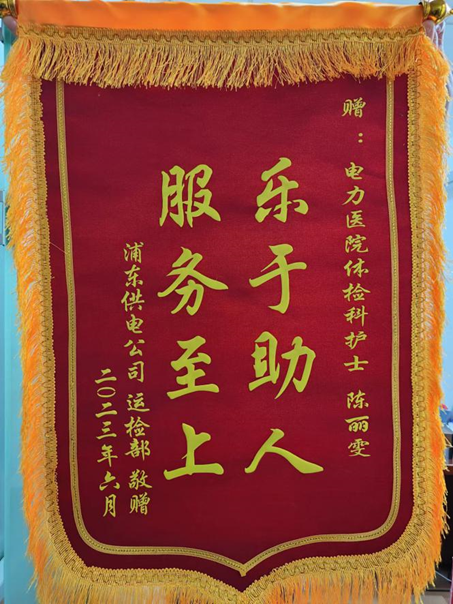 赠：电力医院体检科护士 陈丽雯
乐于助人
服务至上
浦东供电公司 运检部 敬赠
二〇二三年六月